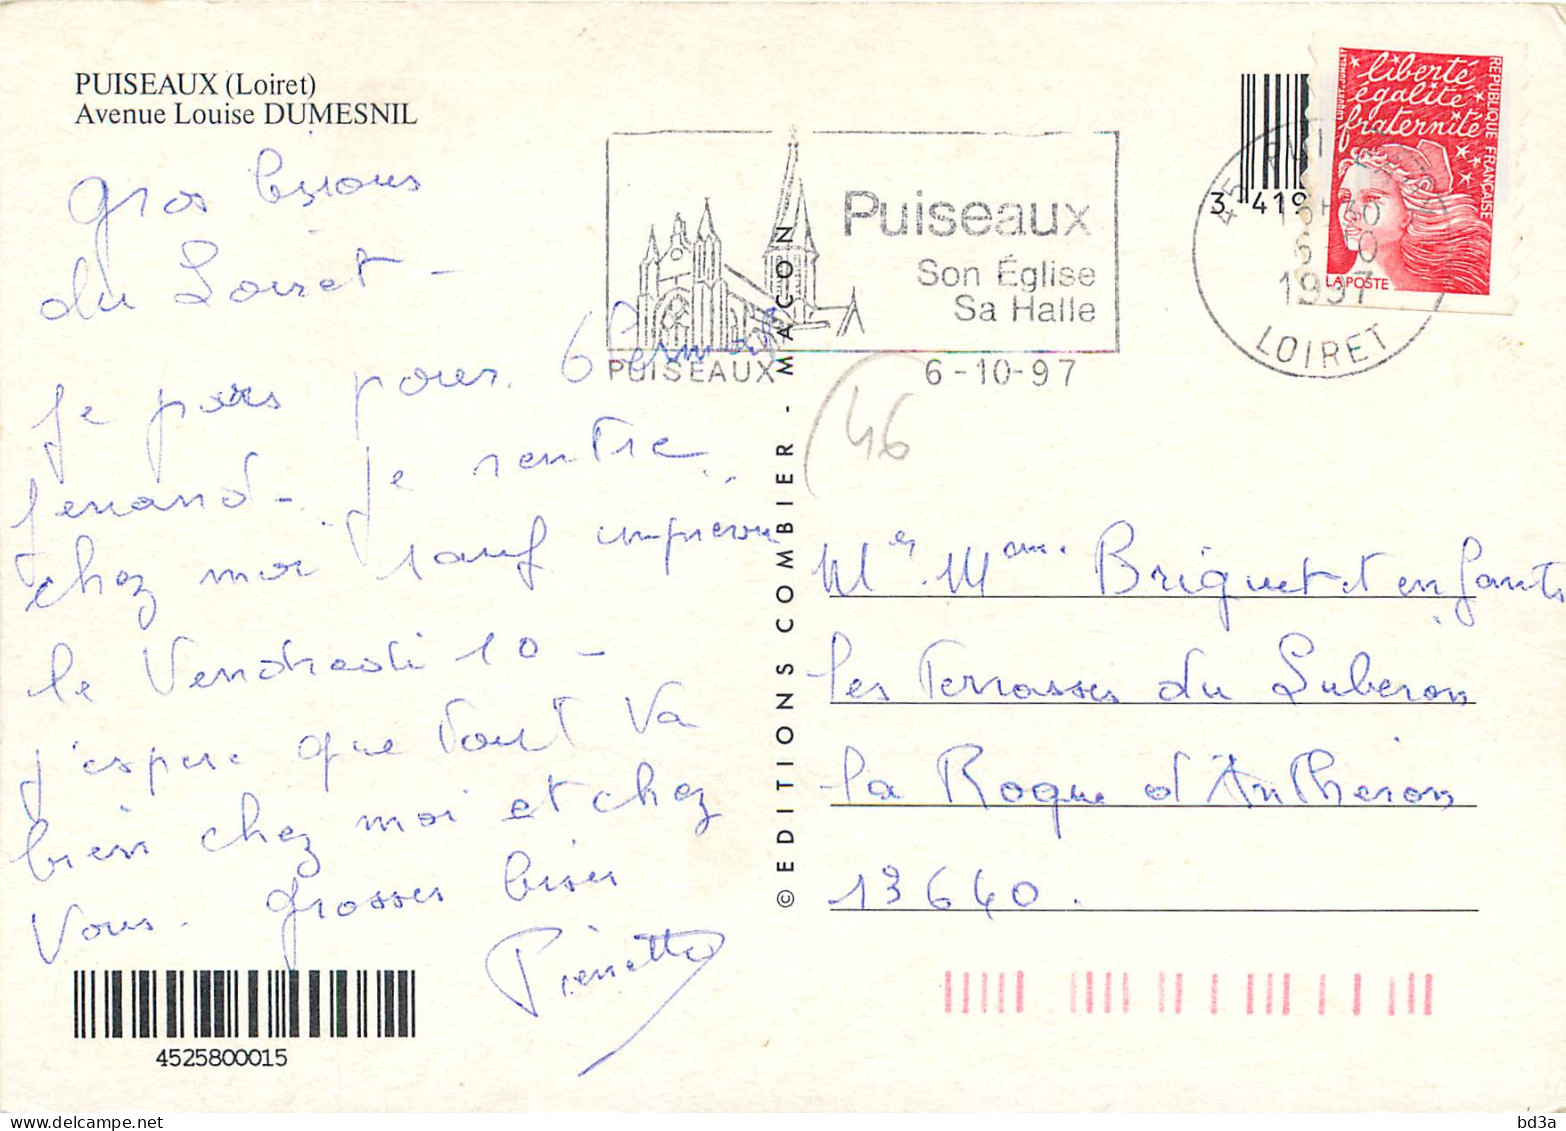 PUISEAUX (Loiret)
Avenue Louise DUMESNIL
Gros bisous
du Loiret -
Je pars pour 6
Je rentre
chez moi sauf imprévu
le Vendredi 10 -
j'espère que tout va
bien chez moi et chez
vous. Grosses bises
Pierrette
4525800015
© EDITIONS COMBIER - MACON
Puiseaux
Son Église
Sa Halle
PUISEAUX
6-10-97
(46
3 419
1997
LOIRET
liberté
égalité
fraternité
REPUBLIQUE FRANÇAISE
LUQUET-JUMELET
LA POSTE
Mr. Mme. Briquet et enfants
les Terrasses du Luberon
la Roque d'Antheron
13640.